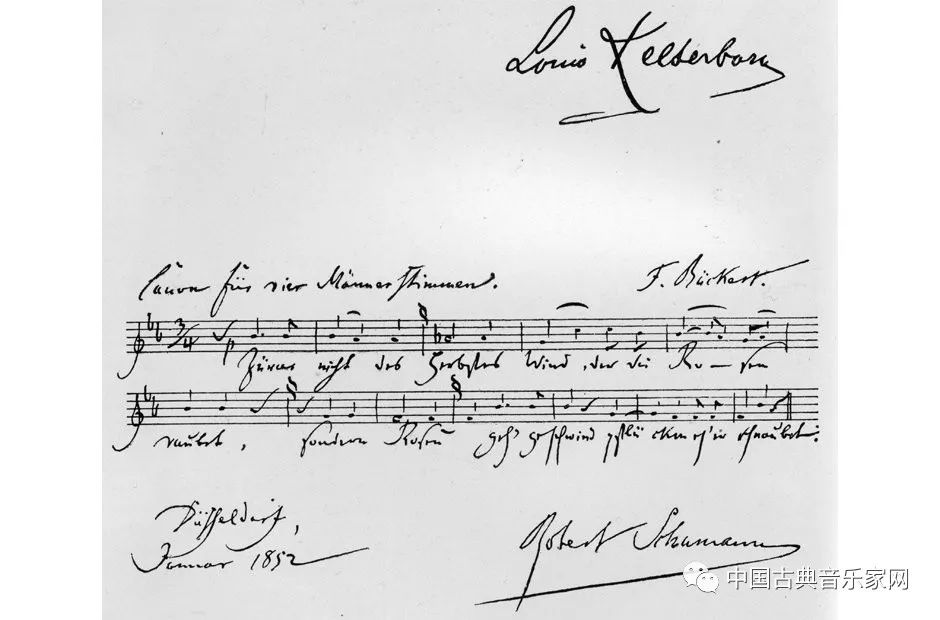 Louis Kelterborn
Canon für vier Männerstimmen.
F. Rückert.
3/4 p
Zürne nicht des Herbstes Wind, der die Ro - sen
raubet, sondern Rosen geh' geschwind pflücken eh' er schnaubet.
Düsseldorf,
Januar 1852
Robert Schumann
中国古典音乐家网